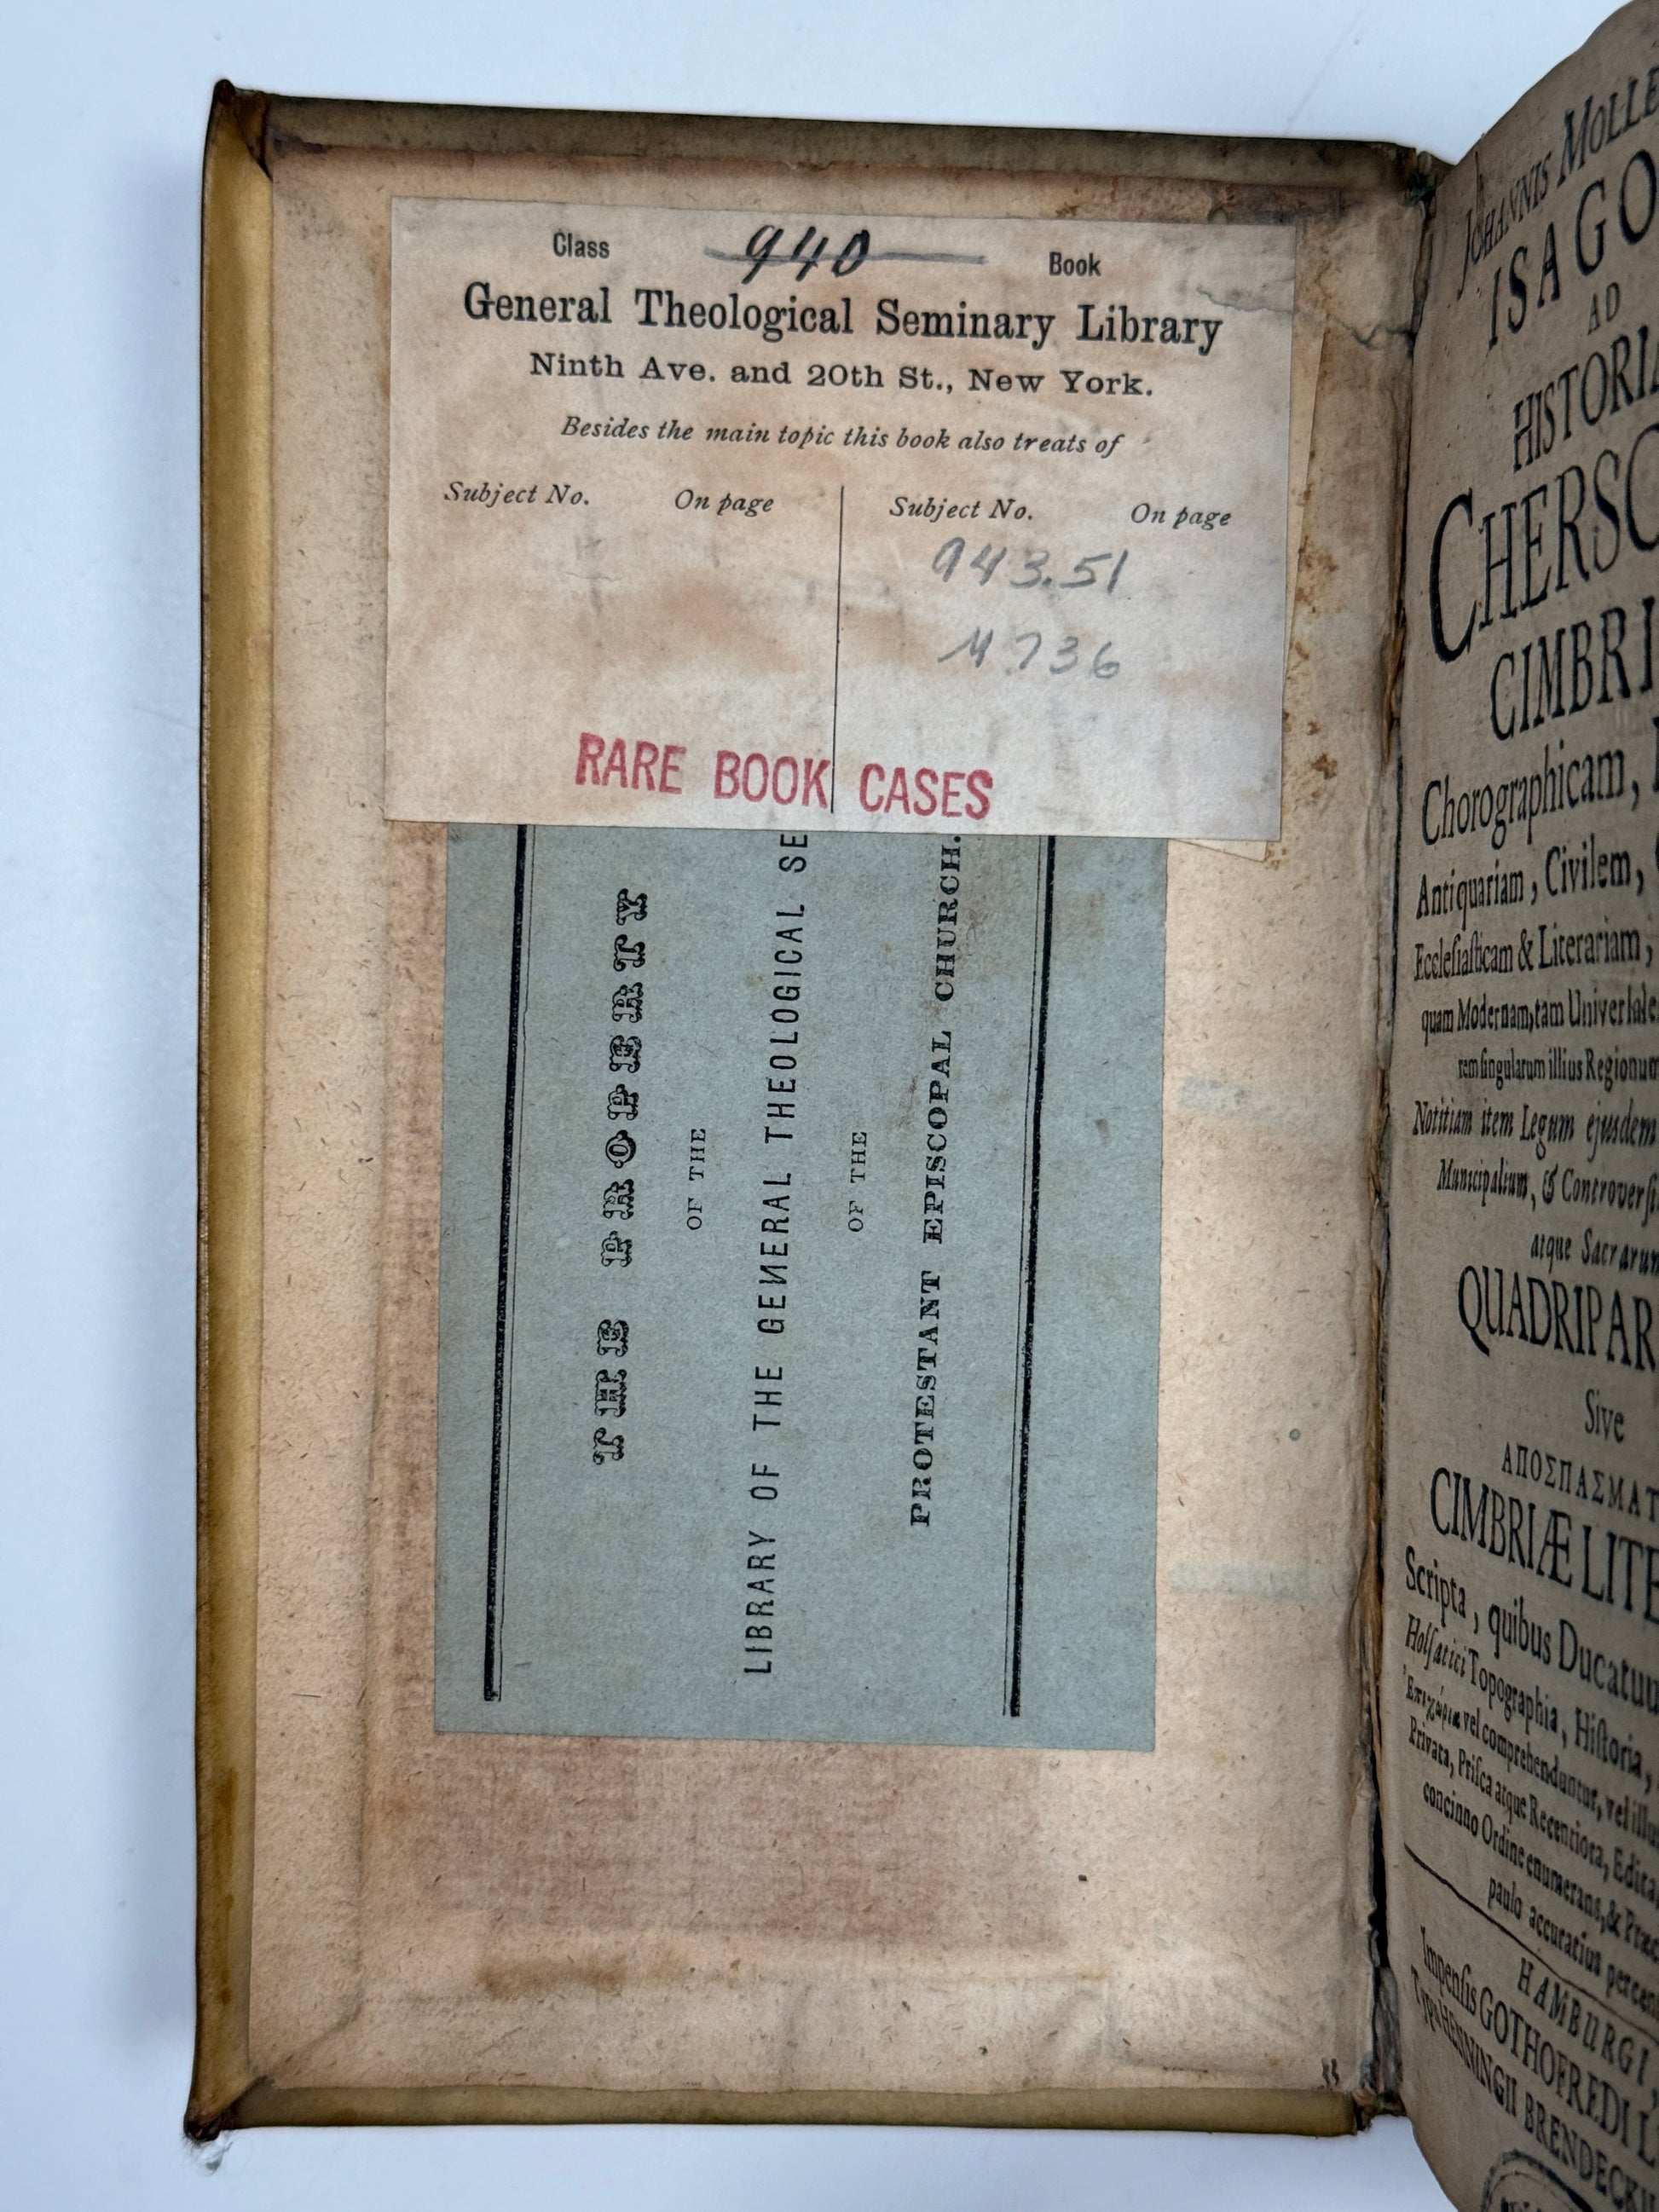 Class 940 Book
General Theological Seminary Library
Ninth Ave. and 20th St., New York.
Besides the main topic this book also treats of
Subject No. On page Subject No. On page
943.51
M736
RARE BOOK CASES
THE PROPERTY
OF THE
LIBRARY OF THE GENERAL THEOLOGICAL SE
OF THE
PROTESTANT EPISCOPAL CHURCH.
JOHANNIS MOLLE
ISAGO
AD
HISTORI
CHERSO
CIMBRI
Chorographicam,
Antiquariam, Civilem,
Ecclesiasticam & Literariam,
quam Modernam, tam Universale
rem singularum illius Regionum
Notitiam item Legum ejusdem
Municipalium, & Controversi
atque Sacrarum
QUADRIPAR
Sive
ΑΠΟΣΠΑΣΜΑΤ
CIMBRIÆ LITE
Scripta, quibus Ducatuu
Holsatici Topographia, Historia,
vel comprehenduntur, vel illu
Privata, Prisca atque Recentiora, Edita
concinno Ordine enumerans, & Præc
paulo accuratius percen
HAMBURGI,
Impensis GOTHOFREDI L
Typis HENNINGII BRENDECKI